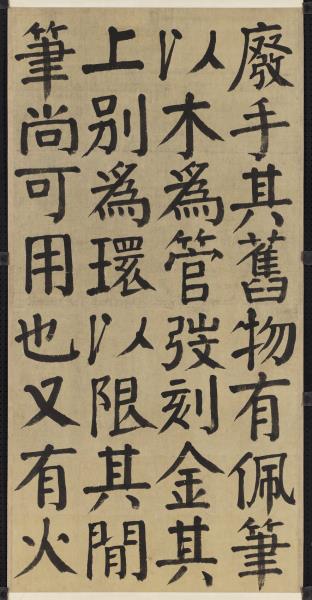 廢手其舊物有佩筆
以木爲管弢刻金其
上别爲環以限其閒
筆尚可用也又有火